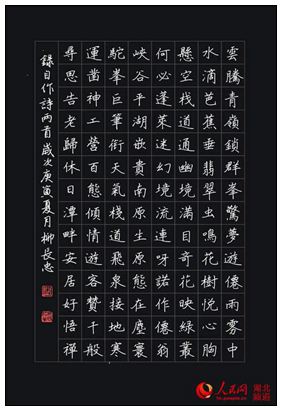 雲騰青嶺鎖群峯驚夢遊僊雨霧中
水滴芭蕉垂翡翠虫鳴花樹悅心胸
懸空棧道通幽境滿目奇花映綠叢
何必蓬萊迷幻境流連呀諾作僊翁
峽谷平湖嵌貴南原生原態在塵寰
駝峯巨筆銜天氣棧道飛泉接地寒
運凿神工營百態傾情遊客贊千般
尋思告老歸休日潭畔安居好悟禪
錄自作詩兩首歲次庚寅夏月柳長忠
人民网 湖北频道